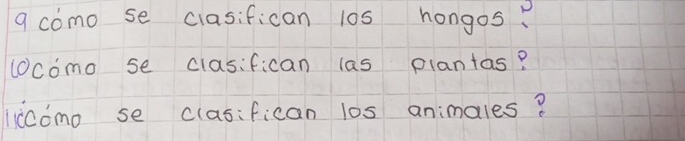 9 cómo se clasifican los hongos?
10 cómo se clasifican las plantas?
11 cómo se clasifican los animales?